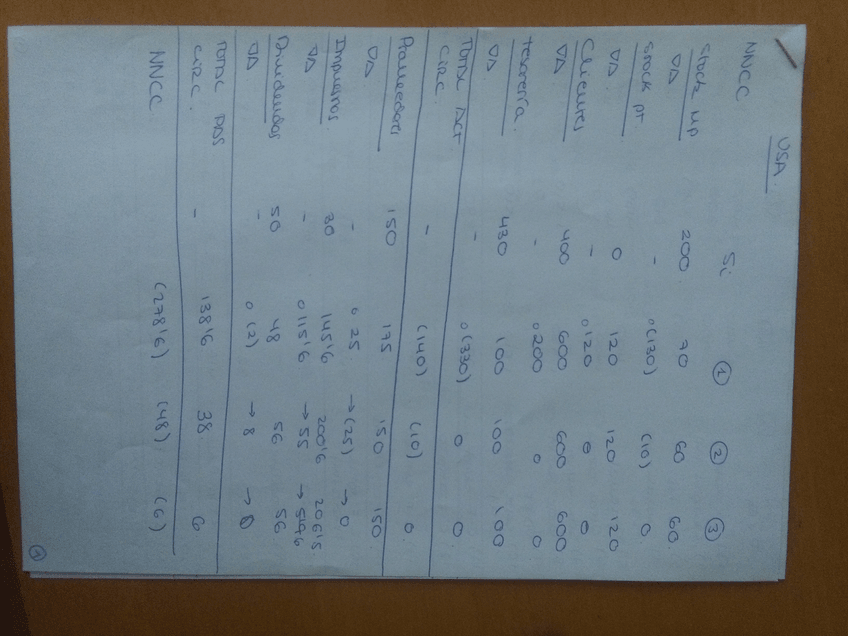 USA.
NNCC Si ① ② ③
Stock MP 200 70 60 60
∇Δ - (130) (10) 0
Stock PT 0 120 120 120
∇Δ - 120 0 0
Clientes 400 600 600 600
∇Δ - 200 0 0
Tesorería 430 100 100 100
∇Δ - (330) 0 0
TOTAL ACT - (140) (10) 0
CIRC.
Proveedores 150 175 150 150
∇Δ - 25 →(25) →0
Impuestos 30 145'6 200'6
∇Δ - 115'6 →55
Dividendos 50 48 56 56
∇Δ - (2) →8 →0
TOTAL PAS - 138'6 38 6
CIRC.
NNCC (278'6) (48) (6)
①